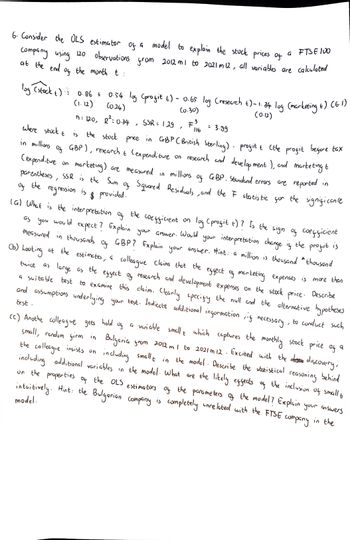 6. Consider the OLS estimator of a model to explain the stock prices of a FTSE 100
company using 120 observations from 2012m1 to 2021m12, all variables are calculated
at the end of the month t:
log(stock t) = 0.86 + 0.54 log (profit t) - 0.65 log (research t) - 1.34 log (marketing t) (6.1)
(1.12) (0.26) (0.30) (0.12)
n = 120, R² = 0.14, SSR = 1.29, F 3 116 = 3.99
where stock t is the stock price in GBP (British Sterling), profit t (the profit before tax
in millions of GBP), research t (expenditure on research and development), and marketing t
(expenditure on marketing) are measured in millions of GBP. Standard errors are reported in
parentheses, SSR is the Sum of Squared Residuals, and the F statistic for the significance
of the regression is provided.
(a) What is the interpretation of the coefficient on log (profit t)? Is the sign of coefficient
as you would expect? Explain your answer. Would your interpretation change if the profit is
measured in thousands of GBP? Explain your answer. Hint: a million is thousand * thousand
(b) Looking at the estimates, a colleague claims that the effect of marketing expenses is more than
twice as large as the effect of research and development expenses on the stock price. Describe
a suitable test to examine this claim. Clearly specify the null and the alternative hypotheses
and assumptions underlying your test. Indicate additional information, if necessary, to conduct such
test.
(c) Another colleague gets hold of a variable small t which captures the monthly stock price of a
small, random firm in Bulgaria from 2012m1 to 2021m12. Excited with the discovery,
the colleague insists on including small t in the model. Describe the statistical reasoning behind
including additional variables in the model. What are the likely effects of the inclusion of small t
on the properties of the OLS estimators of the parameters of the model? Explain your answers
intuitively. Hint: the Bulgarian company is completely unrelated with the FTSE company in the
model.